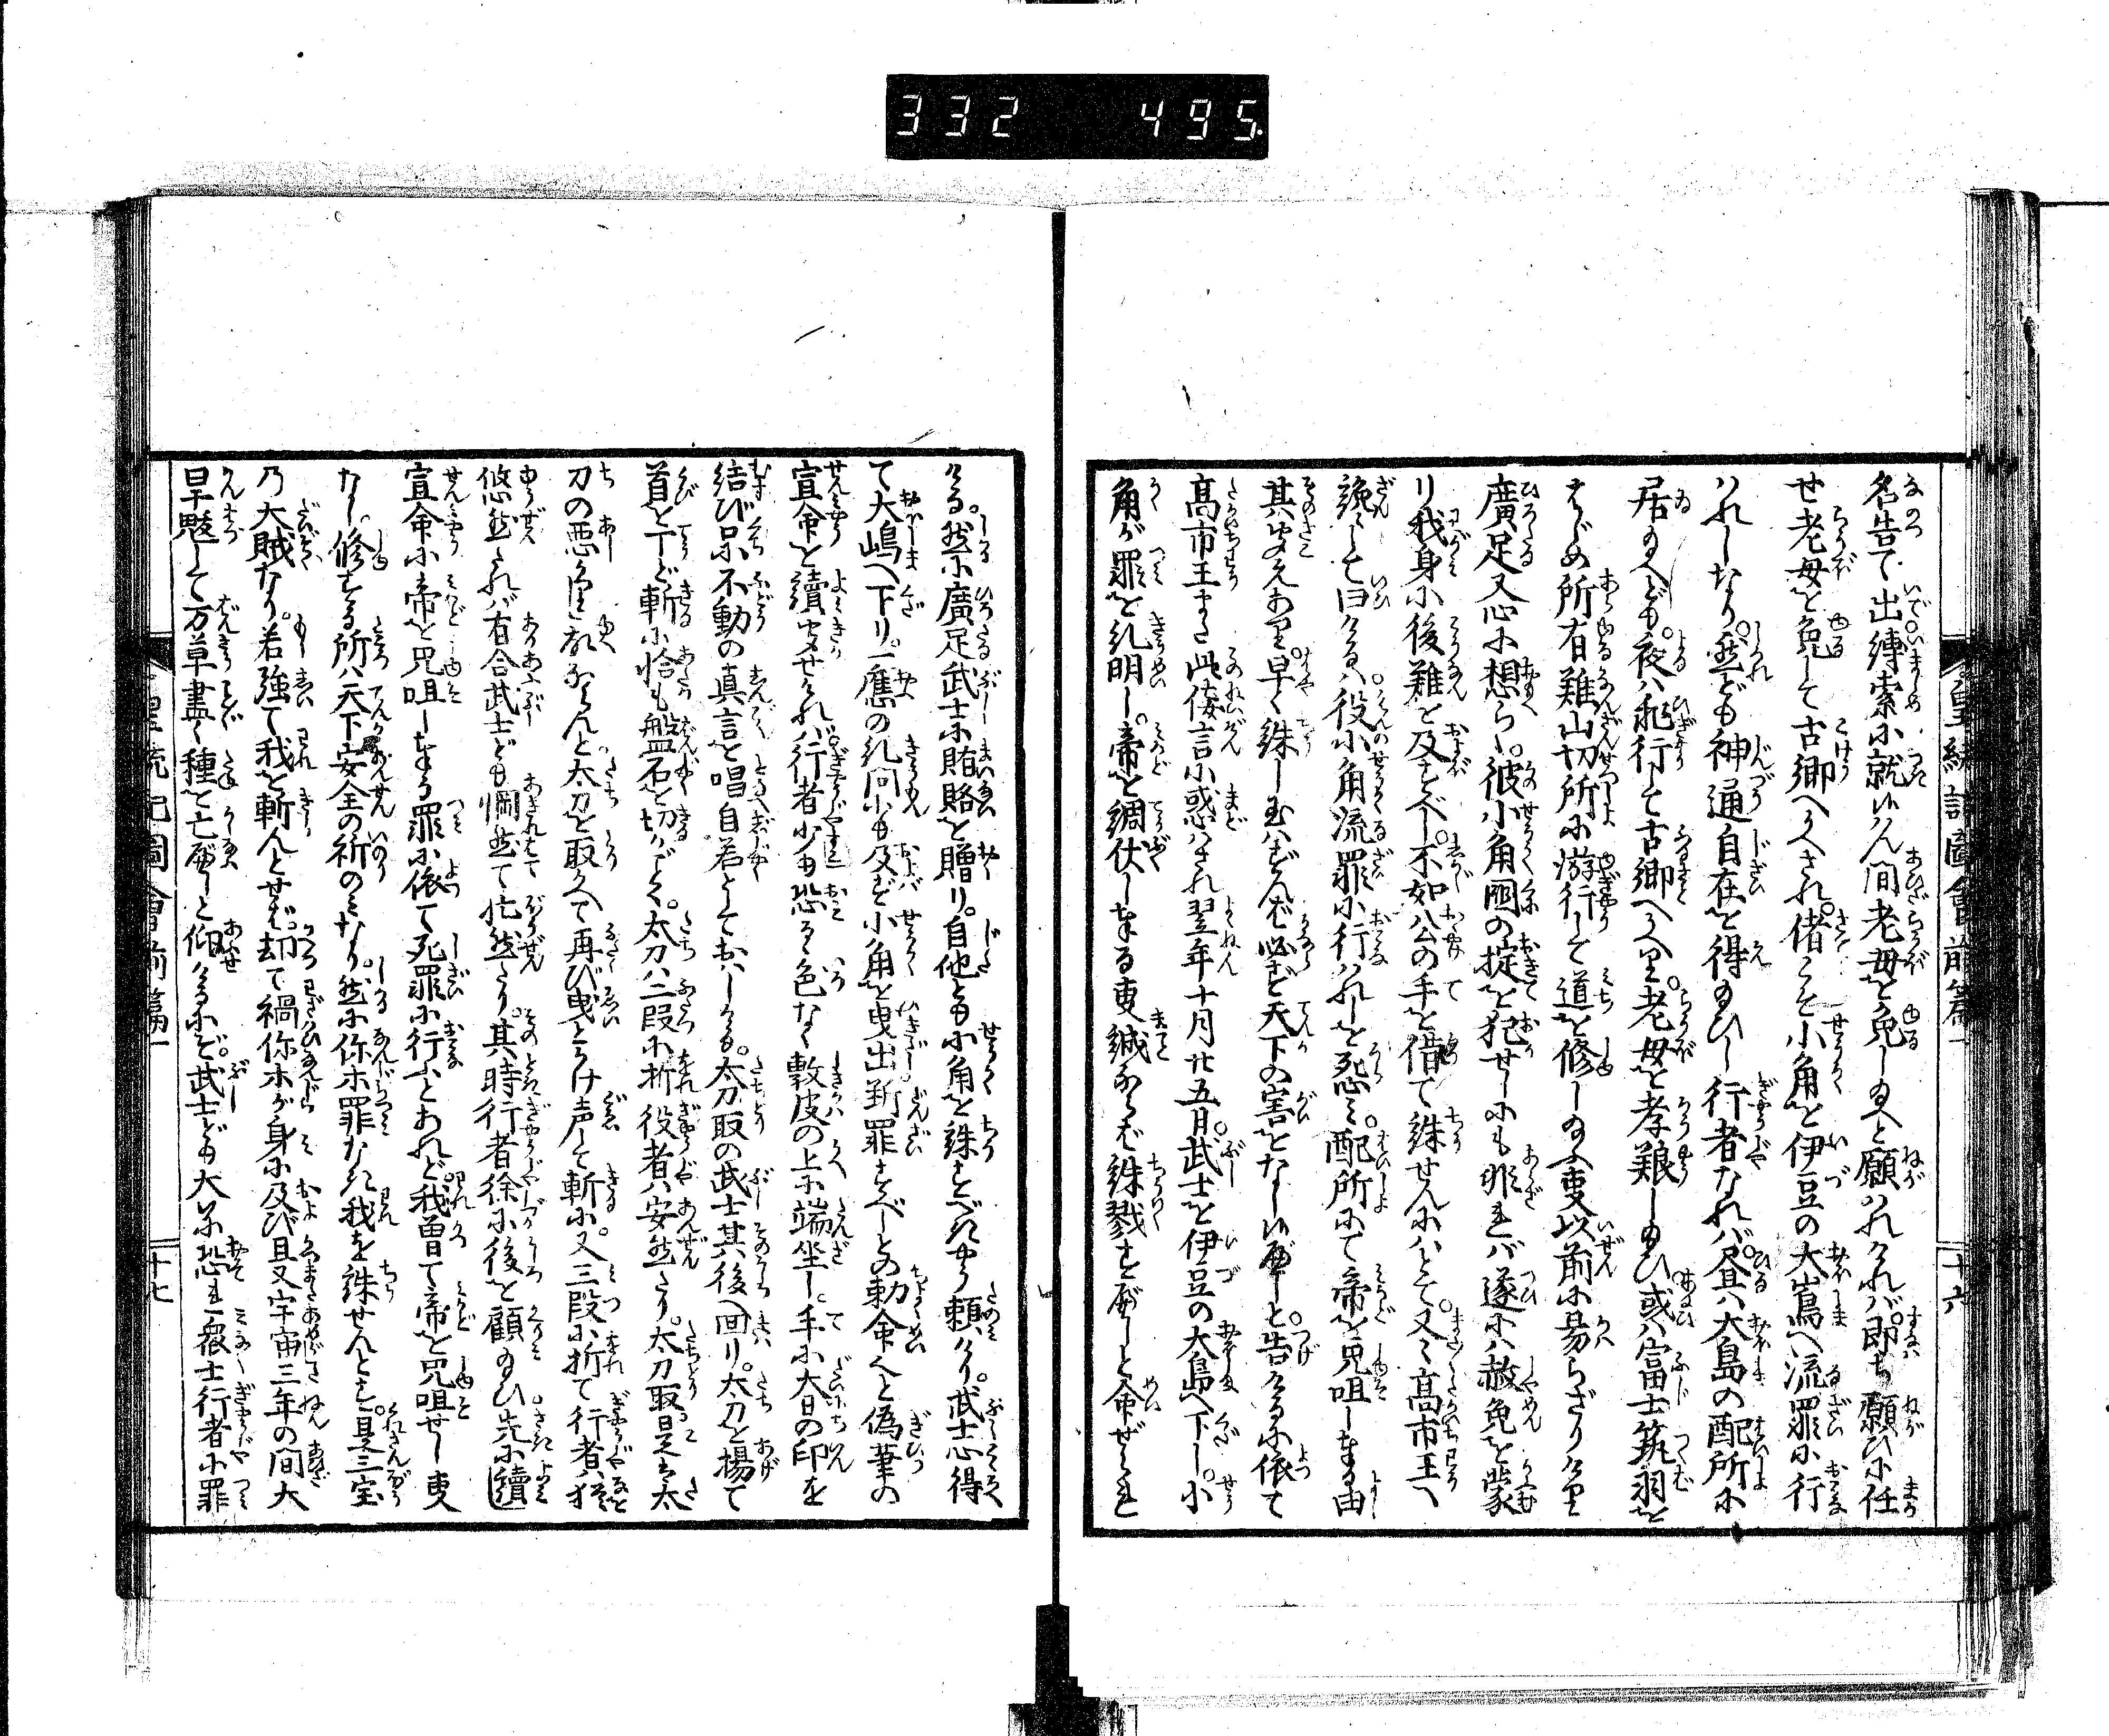 332 495
皇統記圖會前篇一 十六
名告て出縛索に就候はん間老母を免し給へと願はれければ。即ち願ひに任
せ老母を免して古卿へかへされ。偖こそ小角を伊豆の大嶌へ流罪に行
はれしなり。然ども神通自在を得給ひし行者なれバ。昼ハ大島の配所に
居給へども。夜ハ飛行して古卿へかへり。老母を孝養し給ひ或ハ富士筑羽を
はじめ所有難山切所に游行して道を修し給ふ事以前に易らざりけり
廣足又心に想らく。彼小角国の掟を犯せしにも非ればバ遂にハ赦免を蒙
り我身に後難を及すべし。不如公の手を借て誅せんにハとて。又々高市王へ
讒して曰けるハ。役小角流罪に行はれしを怨ミ。配所にて帝を咒咀し奉る由
其聞えあり。早く誅し玉はずんバ必ず天下の害をなし候べしと。告けるに依て
高市王また此侫言に惑はされ翌年十月廿五日。武士を伊豆の大島へ下し。小
角が罪を糺明し。帝を綢伏し奉る事誠ならば誅戮すべしと命ぜられ
ける。然に廣足武士に賄賂を贈り。自他とも小角を誅すべきやう頼けり。武士心得
て大嶋へ下り。一應の糺問にも及ばず小角を曳出斬罪すべしとの勅命へと偽筆の
宣命を讀聞せければ。行者少も恐るゝ色なく敷皮の上に端坐し。手に大日の印を
結び口に不動の真言を唱自若としておはしける。太刀取の武士其後へ回り。太刀を揚て
首を丁ど斬に恰も盤石を切がごとく。太刀ハ二段に折役者ハ安然たり。太刀取是は太
刀の悪き故ならんと太刀を取かへて再び曳とかけ声して斬に。又三段に折て行者ハ猶
悠然たれバ有合武士ども惘然て忙然たり。其時行者徐に後を顧給ひ先に讀
宣命に帝を咒咀し奉る罪に依て死罪に行ふとあれど。我曽て帝を咒咀せし事
なし。修する所ハ天下安全の祈のミなり。然に你等罪なき我を誅せんとす。是三宝
乃大賊なり。若強て我を斬んとせば。却て禍你等が身に及び且又宇宙三年の間大
旱魃して万草盡く種を亡べしと仰けるにぞ。武士ども大に恐れ衆士行者に罪
皇統記圖會前篇一 十七